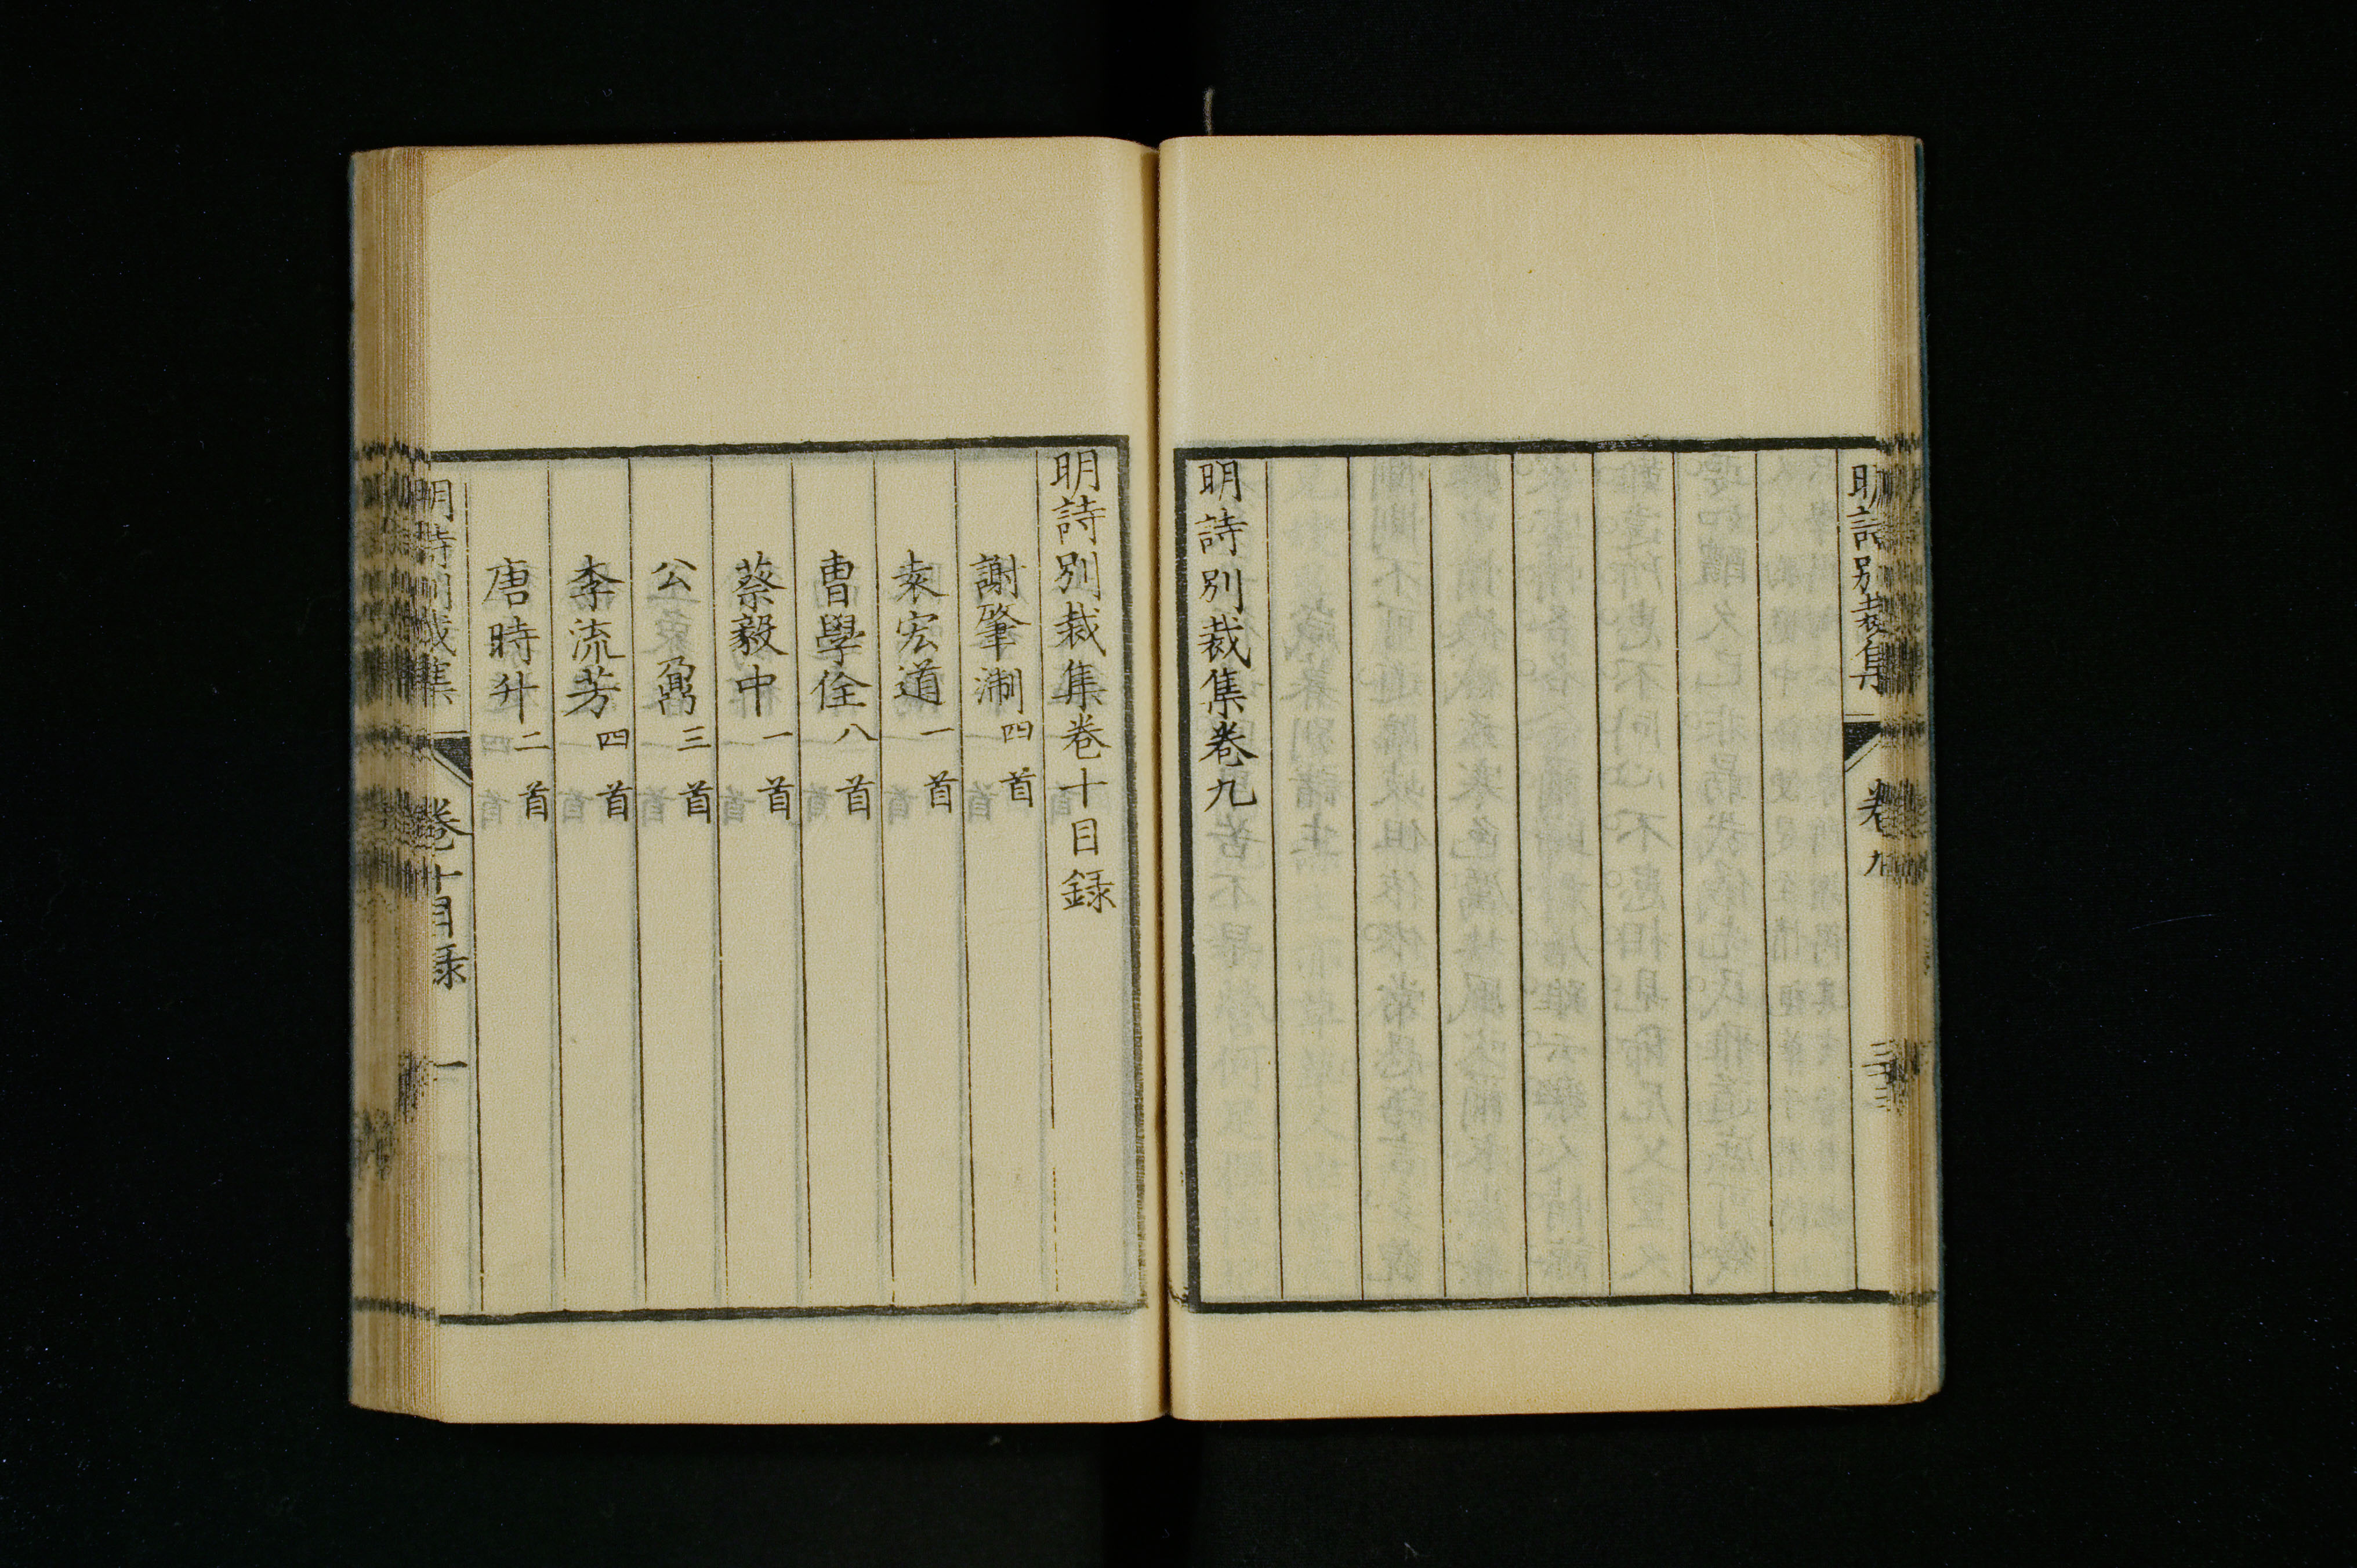 明詩別裁集
卷九
三十三
明詩別裁集卷九
明詩別裁集卷十目錄
謝肇淛四首
袁宏道一首
曹學佺八首
蔡毅中一首
公鼐三首
李流芳四首
唐時升二首
明詩別裁集
卷十目錄
一